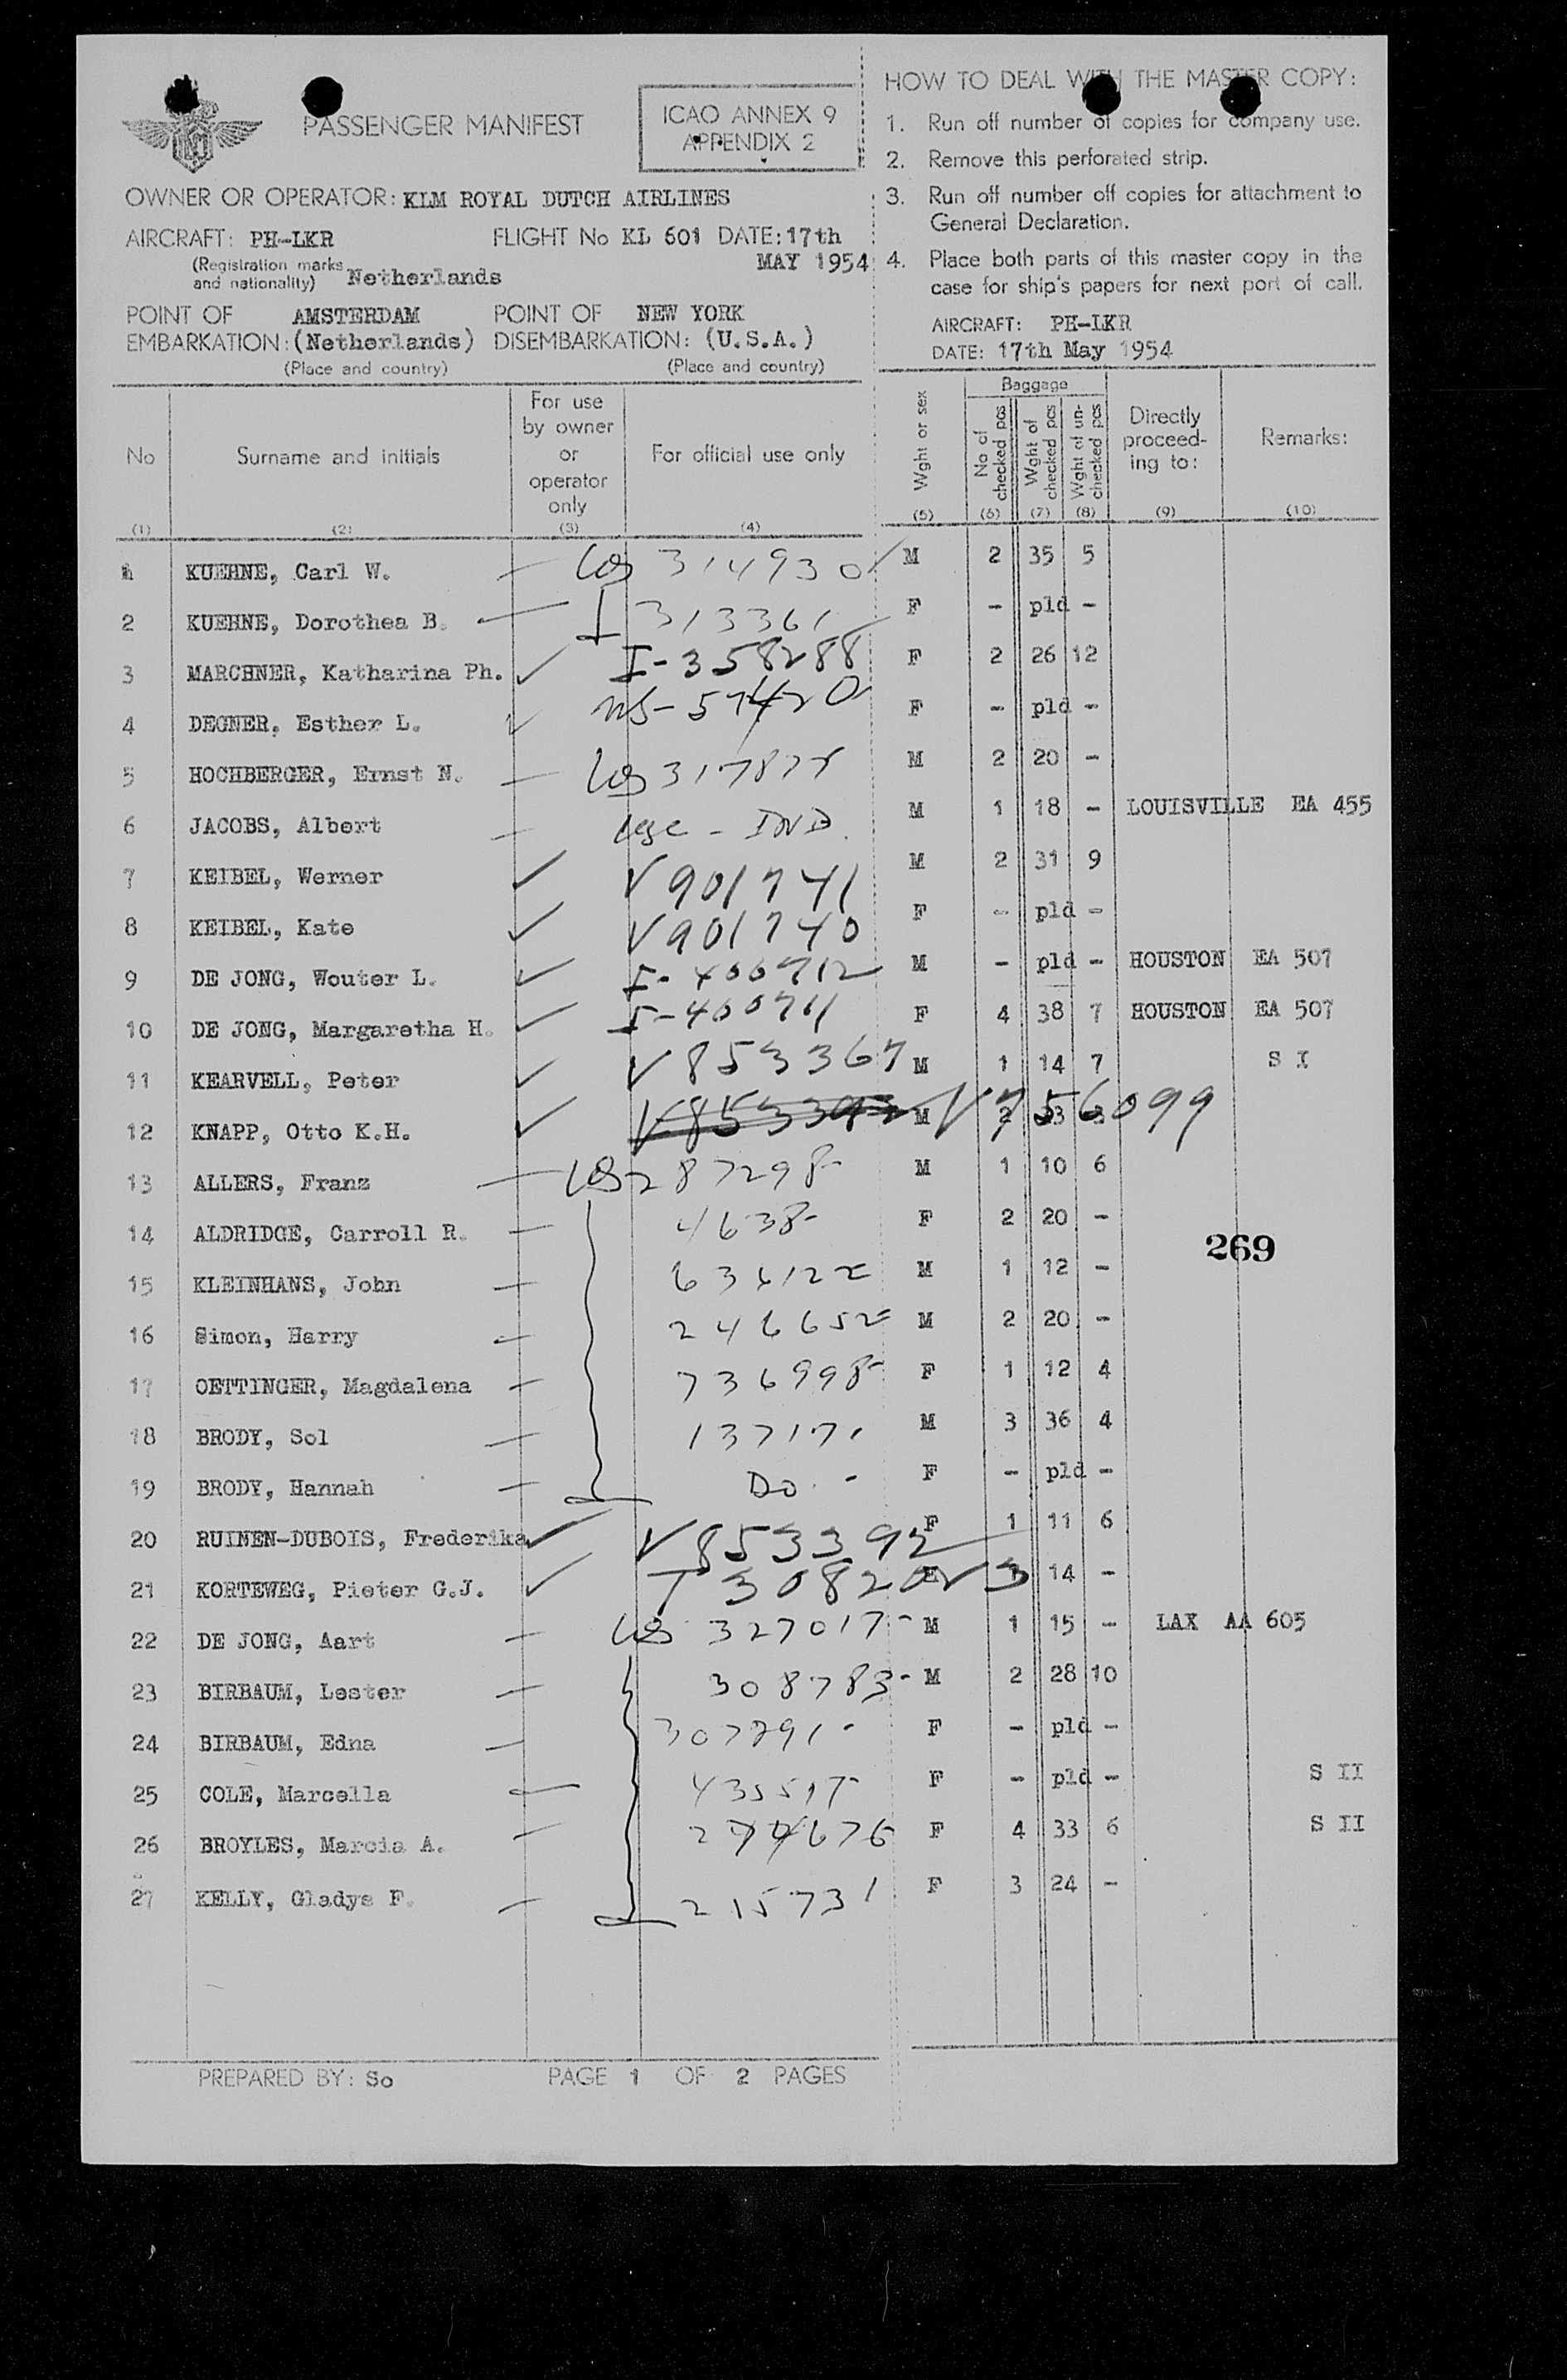 PASSENGER MANIFEST
ICAO ANNEX 9
APPENDIX 2
OWNER OR OPERATOR: KLM ROYAL DUTCH AIRLINES
AIRCRAFT: PH-LKR FLIGHT No KL 601 DATE: 17th
(Registration marks and nationality) Netherlands MAY 1954
POINT OF EMBARKATION: AMSTERDAM (Netherlands) POINT OF DISEMBARKATION: NEW YORK (U.S.A.)
(Place and country) (Place and country)
HOW TO DEAL WITH THE MASTER COPY:
1. Run off number of copies for company use.
2. Remove this perforated strip.
3. Run off number off copies for attachment to
General Declaration.
4. Place both parts of this master copy in the
case for ship's papers for next port of call.
AIRCRAFT: PH-LKR
DATE: 17th May 1954
No Surname and initials For use by owner or operator only For official use only Wght or sex Baggage No of checked pcs Wght of checked pcs Wght of un-checked pcs Directly proceed-ing to: Remarks:
(1) (2) (3) (4) (5) (6) (7) (8) (9) (10)
1 KUEHNE, Carl W. 314930 M 2 35 5
2 KUEHNE, Dorothea B. 313361 F - pld -
3 MARCHNER, Katharina Ph. I-358288 F 2 26 12
4 DEGNER, Esther L. F - pld -
5 HOCHBERGER, Ernst N. M 2 20 -
6 JACOBS, Albert M 1 18 - LOUISVILLE EA 455
7 KEIBEL, Werner V901741 M 2 31 9
8 KEIBEL, Kate V901740 F - pld -
9 DE JONG, Wouter L. I-400712 M - pld - HOUSTON EA 507
10 DE JONG, Margaretha H. I-400711 F 4 38 7 HOUSTON EA 507
11 KEARVELL, Peter V853367 M 1 14 7 S I
12 KNAPP, Otto K.H. V853393 M 2 V756099
13 ALLERS, Franz 287298 M 1 10 6
14 ALDRIDGE, Carroll R. 4638 F 2 20 -
15 KLEINHANS, John M 1 12 -
16 Simon, Harry 246652 M 2 20 -
17 OETTINGER, Magdalena 736998 F 1 12 4
18 BRODY, Sol 137171 M 3 36 4
19 BRODY, Hannah Do - F - pld -
20 RUINEN-DUBOIS, Frederika V853392 F 1 11 6
21 KORTEWEG, Pieter G.J. 14 -
22 DE JONG, Aart 327017 M 1 15 - LAX AA 605
23 BIRBAUM, Lester 308783 M 2 28 10
24 BIRBAUM, Edna F - pld -
25 COLE, Marcella F - pld - S II
26 BROYLES, Marcia A. F 4 33 6 S II
27 KELLY, Gladys F. 215731 F 3 24 -
269
PREPARED BY: So PAGE 1 OF 2 PAGES